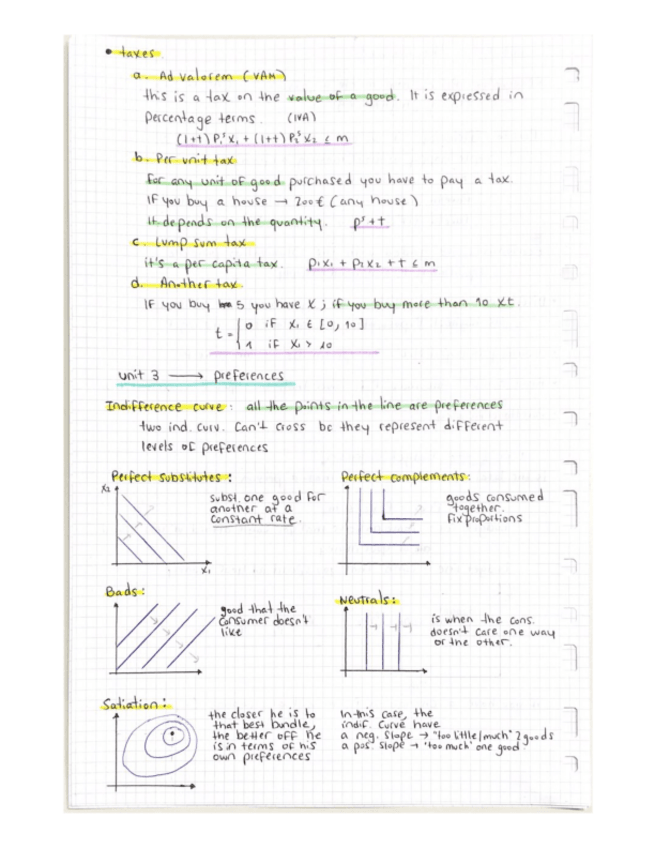 • taxes
a. Ad valorem (VAM)
this is a tax on the value of a good. It is expressed in
percentage terms. (IVA)
(1+t)P₁ˢX₁ + (1+t)P₂ˢX₂ ≤ m
b. Per unit tax
for any unit of good purchased you have to pay a tax.
IF you buy a house → 200€ (any house)
It depends on the quantity. pˢ+t
c. Lump sum tax
it's a per capita tax. P₁X₁ + P₂X₂ + t ≤ m
d. Another tax
IF you buy 5 you have X ; if you buy more than 10 Xt.
t = { 0 if X₁ ∈ [0, 10]
1 if X₁ > 10
unit 3 → preferences
Indifference curve: all the points in the line are preferences
two ind. curv. Can't cross bc they represent different
levels of preferences
Perfect substitutes:
X₂
X₁
subst. one good for
another at a
constant rate.
Perfect complements:
goods consumed
together.
Fix proportions
Bads:
good that the
consumer doesn't
like
Neutrals:
is when the cons.
doesn't care one way
or the other.
Satiation:
the closer he is to
that best bundle,
the better off he
is in terms of his
own preferences
In this case, the
indif. curve have
a neg. slope → "too little/much" 2 goods
a pos. slope → 'too much' one good